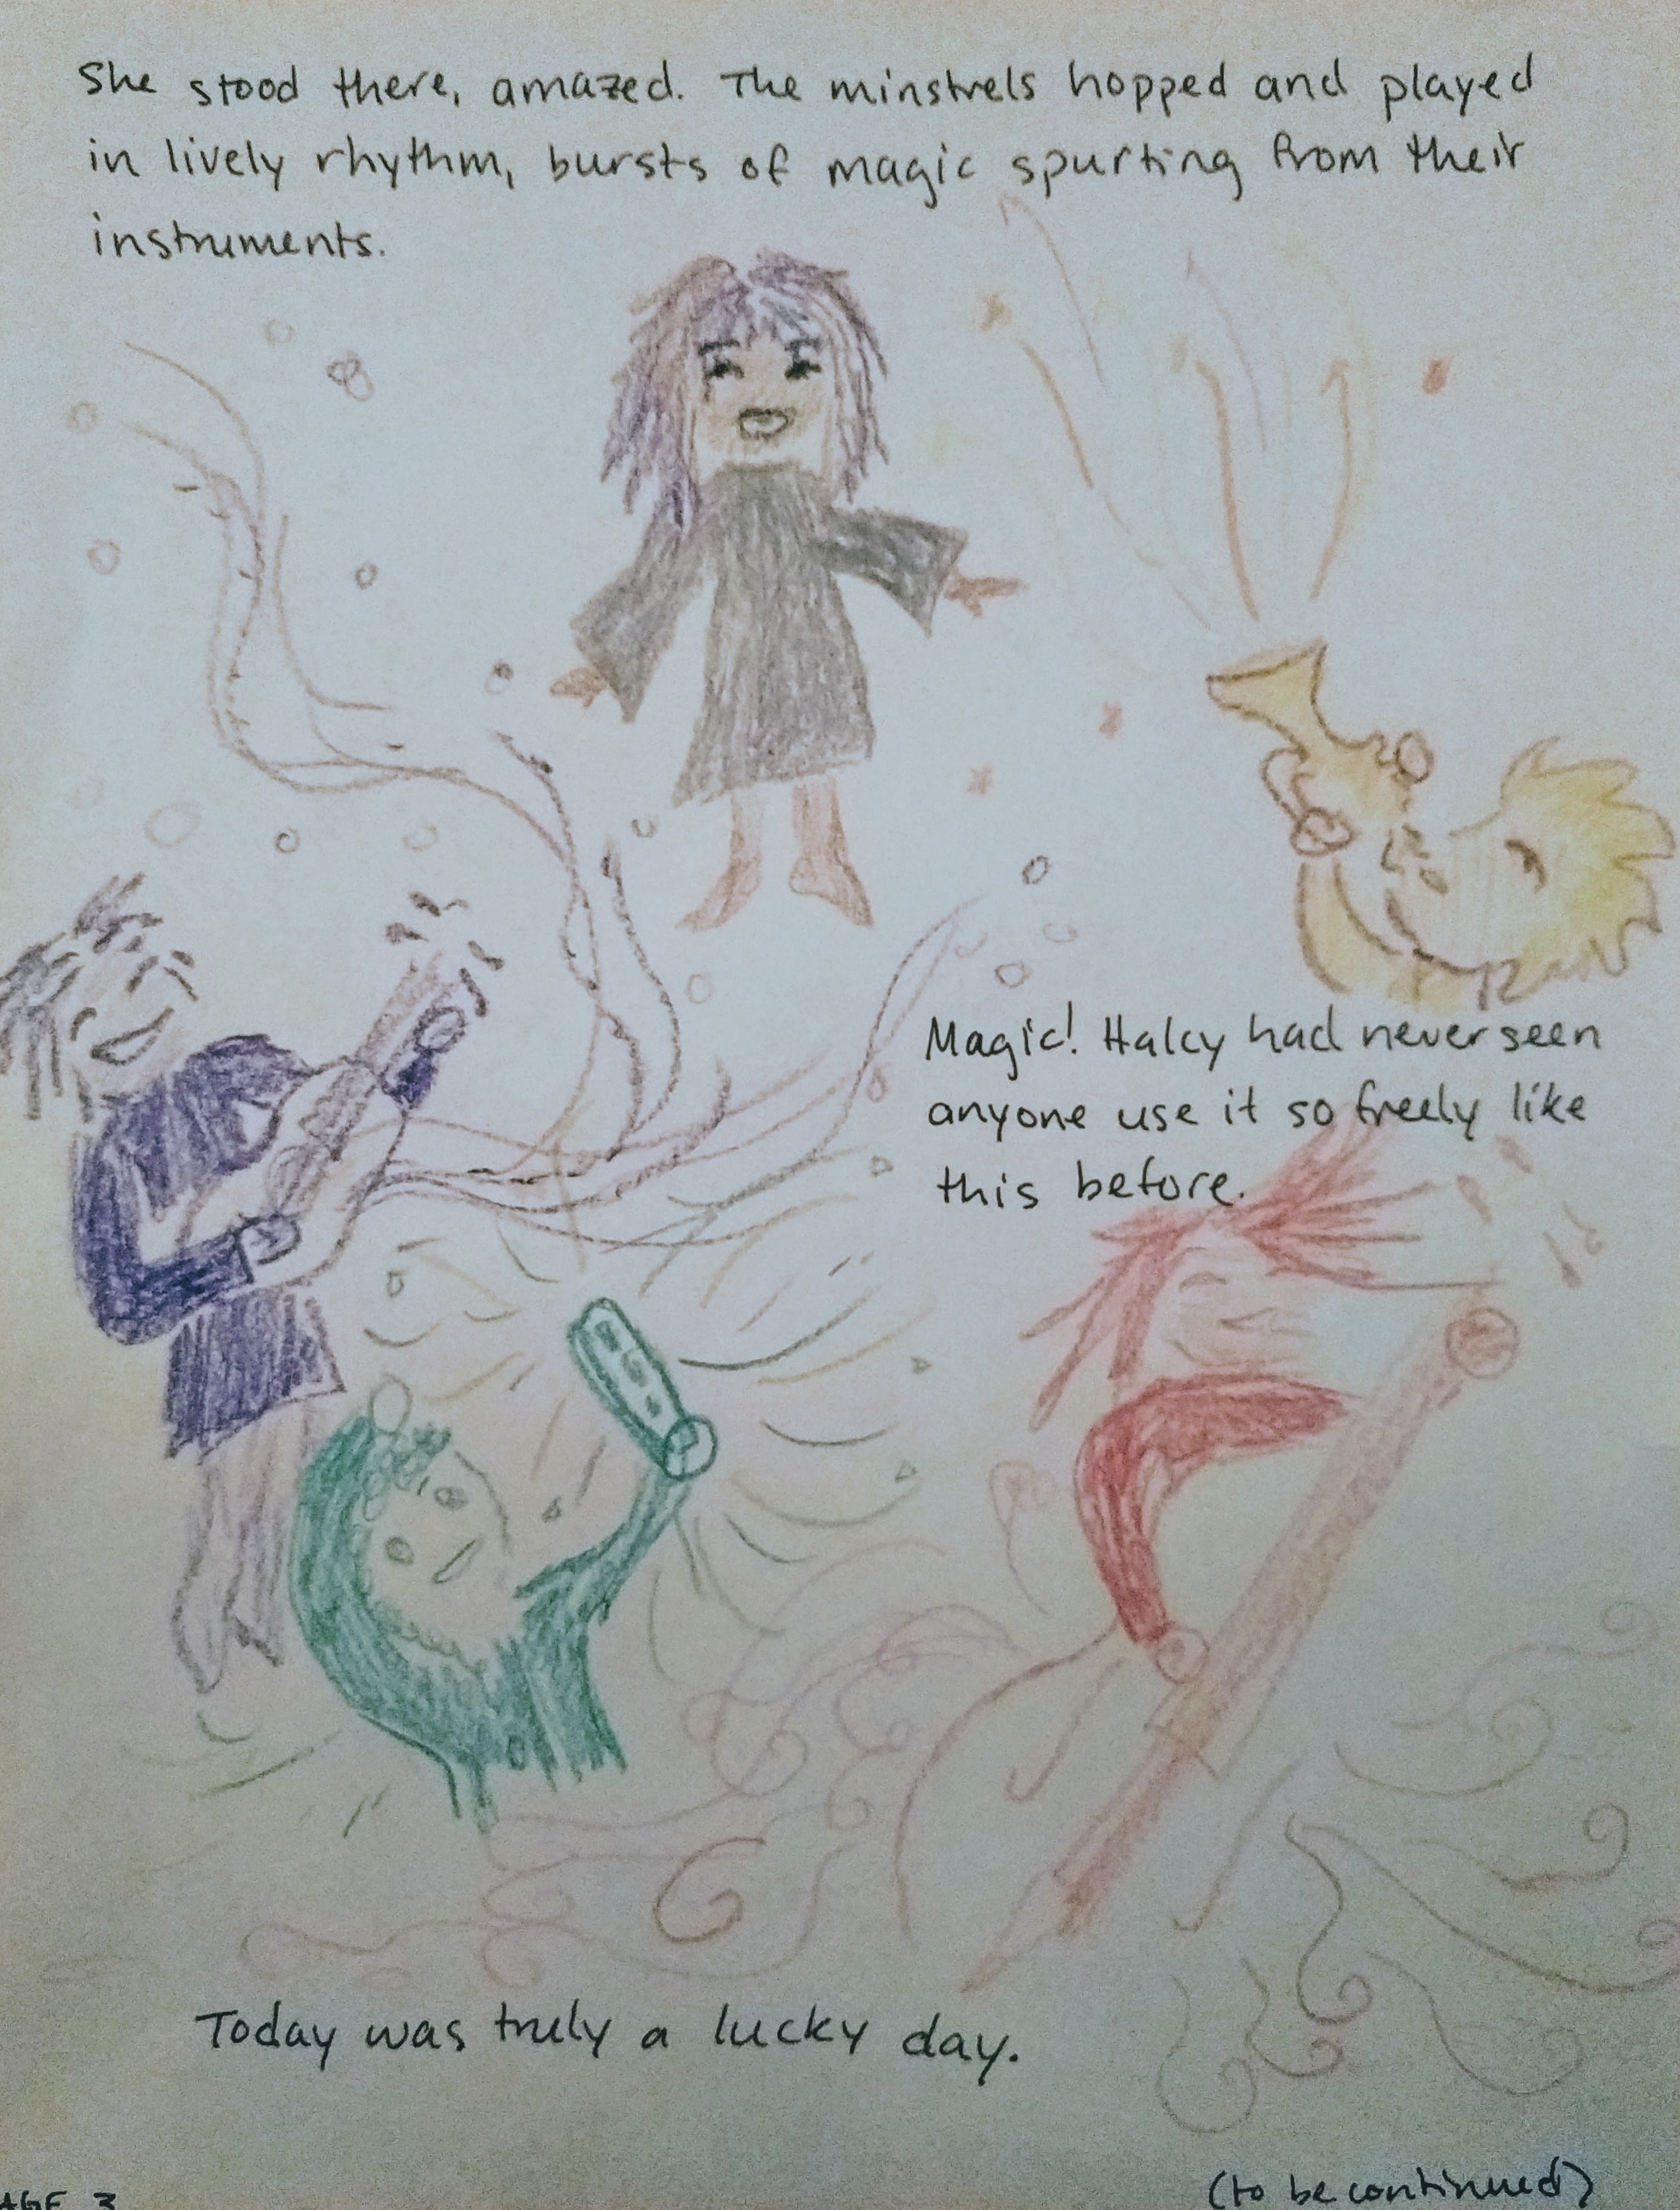 She stood there, amazed. The minstrels hopped and played
in lively rhythm, bursts of magic spurting from their
instruments.
Magic! Halcy had never seen
anyone use it so freely like
this before.
Today was truly a lucky day.
(to be continued)
3